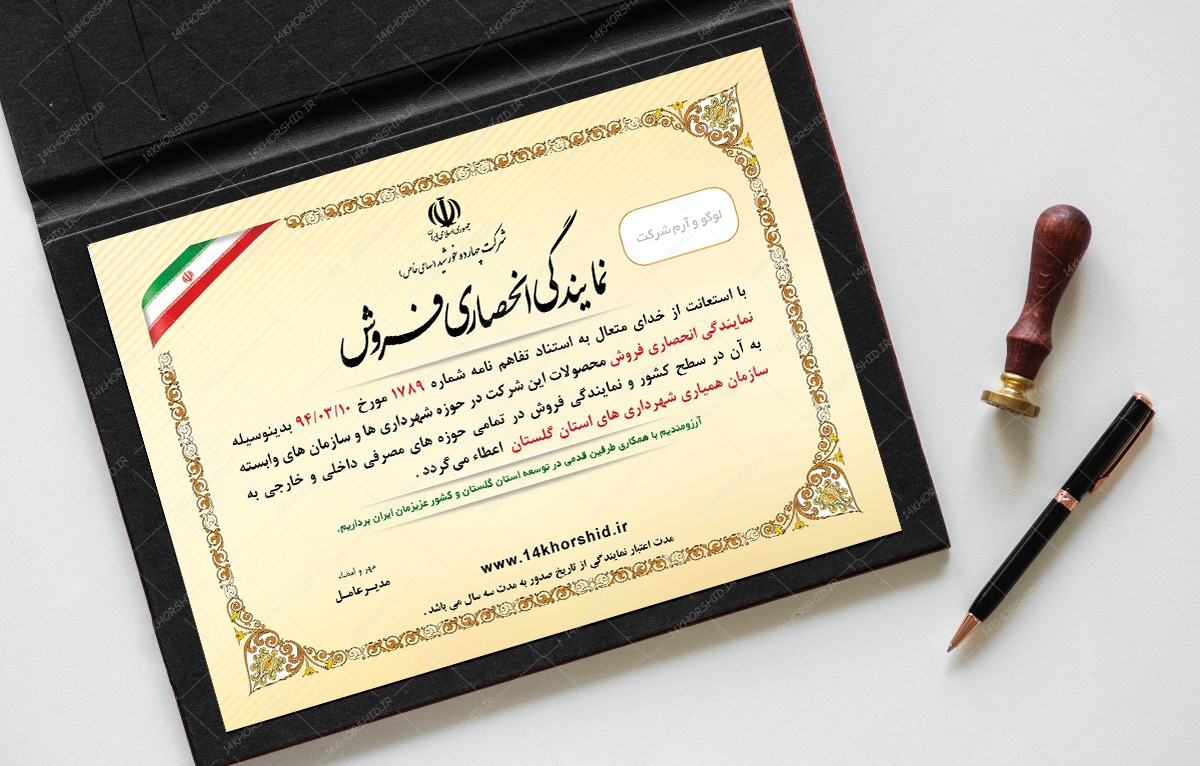 جمهوری اسلامی ایران
شرکت چهارده خورشید (سهامی خاص)
نمایندگی انحصاری فروش
لوگو و آرم شرکت
با استعانت از خدای متعال به استناد تفاهم نامه شماره ۱۷۸۹ مورخ ۹۴/۰۳/۱۰ بدینوسیله
نمایندگی انحصاری فروش محصولات این شرکت در حوزه شهرداری ها و سازمان های وابسته
به آن در سطح کشور و نمایندگی فروش در تمامی حوزه های مصرفی داخلی و خارجی به
سازمان همیاری شهرداری های استان گلستان اعطاء می گردد .
آرزومندیم با همکاری طرفین قدمی در توسعه استان گلستان و کشور عزیزمان ایران برداریم.
www.14khorshid.ir
مهر و امضاء
مدیرعامل
مدت اعتبار نمایندگی از تاریخ صدور به مدت سه سال می باشد .
14KHORSHID.IR